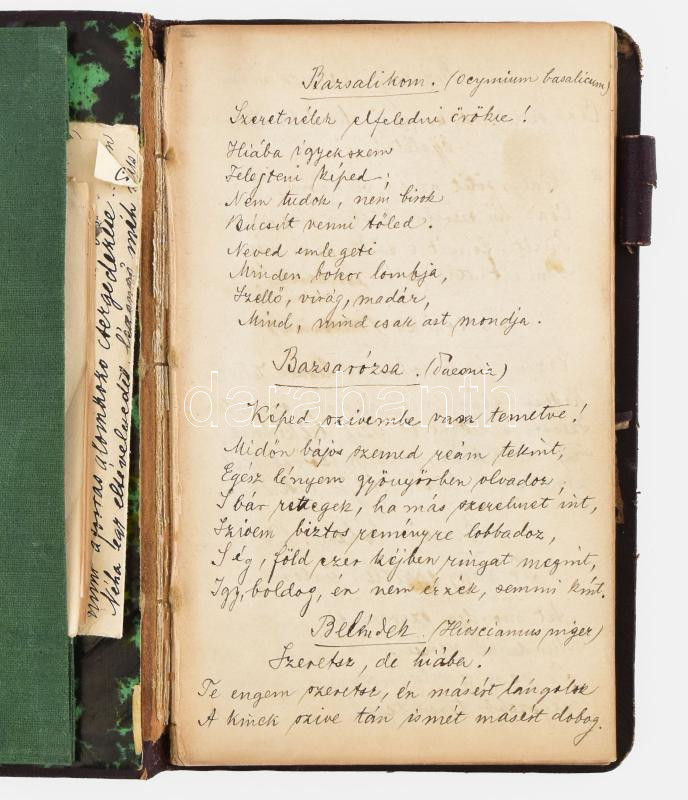 Bazsalikom. (Ocymium basalicum)
Szeretnélek elfeledni örökre!
Hiába igyekszem
Felejteni képed;
Nem tudok, nem birok
Búcsút venni tőled.
Neved emlegeti
Minden bokor lombja,
Szellő, virág, madár,
Mind, mind csak azt mondja.
Bazsarózsa. (Paeonia)
Képed szivembe van temetve!
Midőn bájos szemed reám tekint,
Egész lényem gyönyörben olvadoz,
S bár rettegek, ha más szerelmet int,
Szivem biztos reményre lobbadoz,
S ég, föld ezer kéjben ringat megint,
Igy, boldog, én nem érzék, semmi kint.
Beléndek. (Hioscianus niger)
Szeretsz, de hiába!
Te engem szeretsz, én másért lángolok
A kinek szive tán ismét másért dobog.
mint a forrás
Néha egy eltévelyedett
darabanth